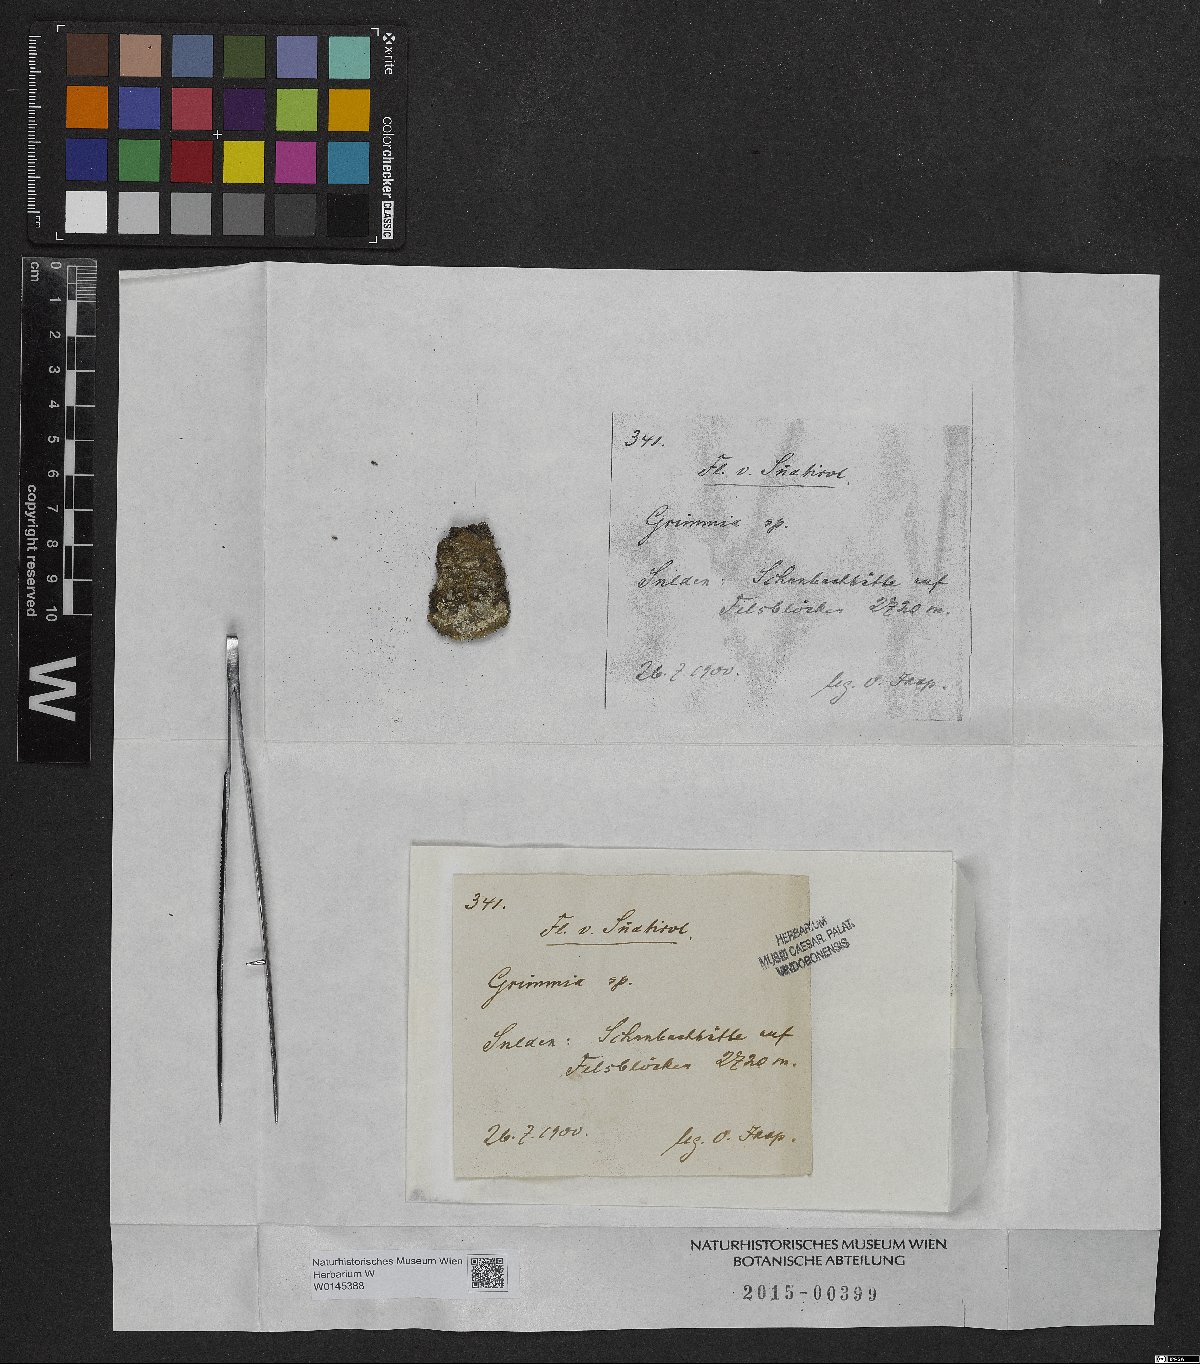 x-rite
colorchecker CLASSIC
cm
0 1 2 3 4 5 6 7 8 9 10
copyright reserved
W
341.
Fl. v. Südtirol.
Grimmia sp.
Sulden: Schaubachhütte auf
Felsblöcken 2720 m.
26.7.1900.
leg. O. Jaap.
341.
Fl. v. Südtirol.
Grimmia sp.
Sulden: Schaubachhütte auf
Felsblöcken 2720 m.
26.7.1900.
leg. O. Jaap.
HERBARIUM
MUSEI CAESAR. PALAT.
VINDOBONENSIS
Naturhistorisches Museum Wien
Herbarium W
W0145388
NATURHISTORISCHES MUSEUM WIEN
BOTANISCHE ABTEILUNG
2015-00399